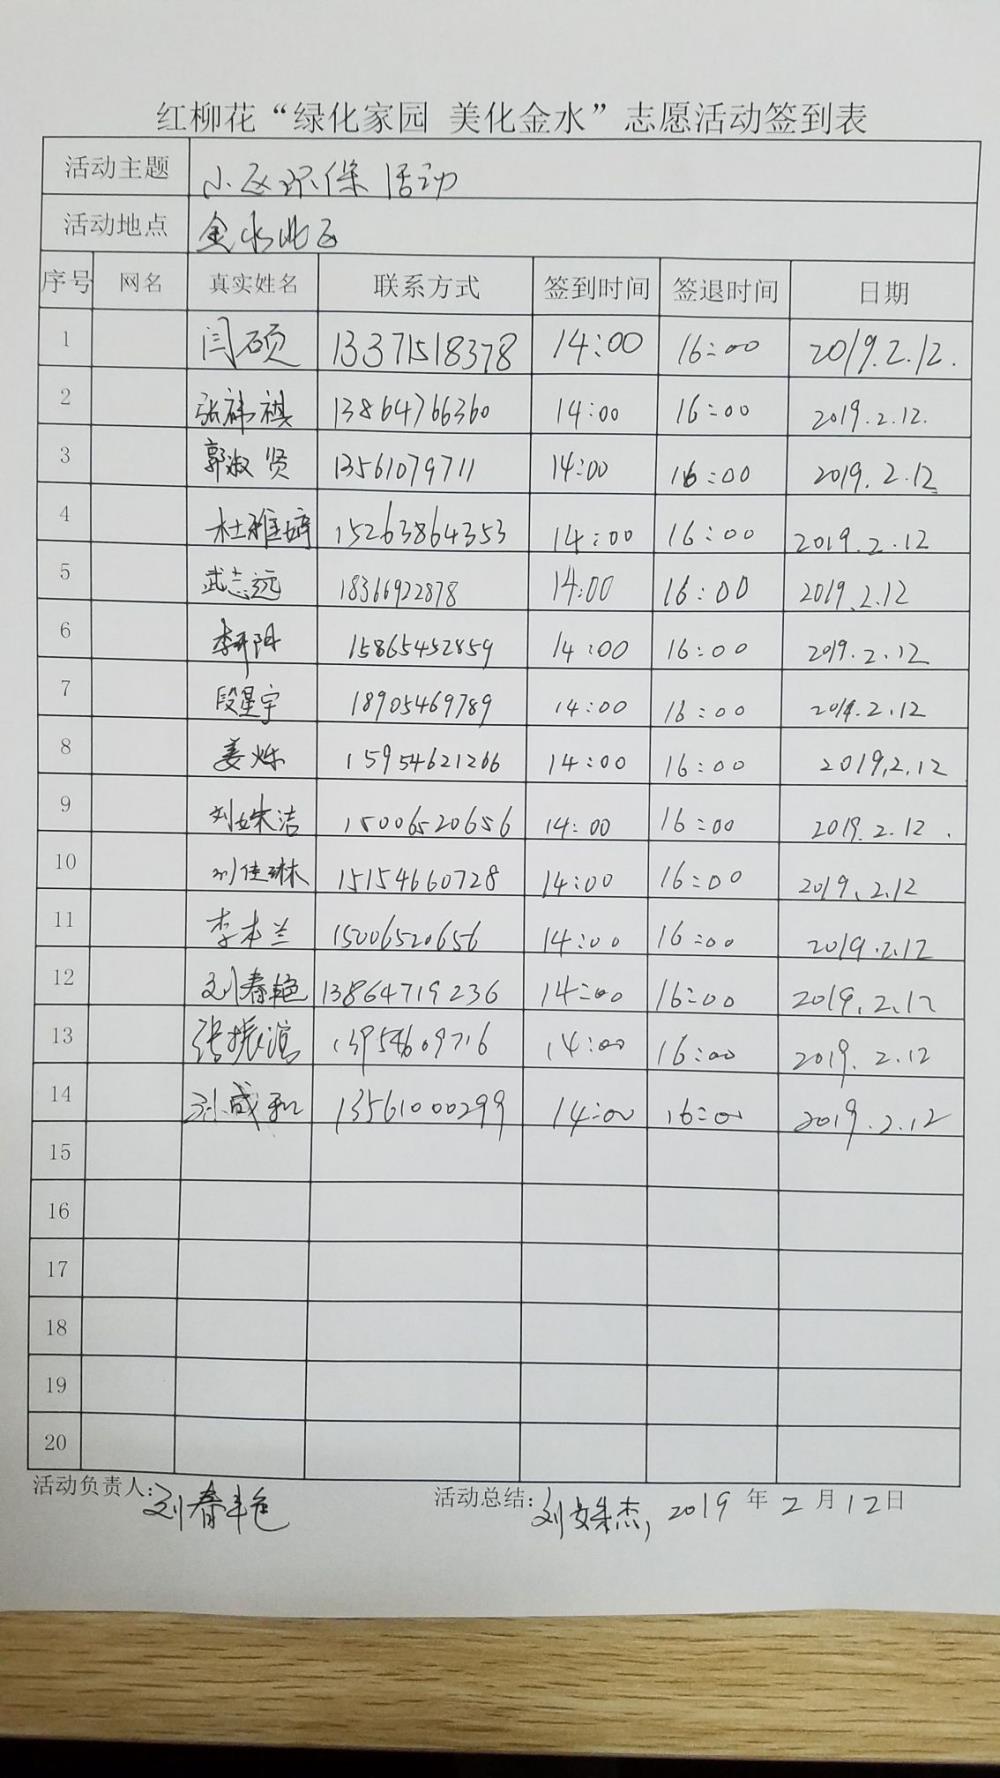 红柳花“绿化家园 美化金水”志愿活动签到表
活动主题 小区环保活动
活动地点 金水北区
序号 网名 真实姓名 联系方式 签到时间 签退时间 日期
1 闫硕 13371518378 14:00 16:00 2019.2.12.
2 张祎祺 13864766360 14:00 16:00 2019.2.12.
3 郭淑贤 13561079711 14:00 16:00 2019.2.12
4 杜雅婷 15263864353 14:00 16:00 2019.2.12
5 武志远 18366922878 14:00 16:00 2019.2.12
6 李开阳 15865452859 14:00 16:00 2019.2.12
7 段星宇 18905469789 14:00 16:00 2019.2.12
8 姜烁 15954621266 14:00 16:00 2019.2.12
9 刘姝洁 15006520656 14:00 16:00 2019.2.12.
10 刘佳琳 15154660728 14:00 16:00 2019.2.12
11 李本兰 15006520656 14:00 16:00 2019.2.12
12 刘春艳 13864719236 14:00 16:00 2019.2.12
13 张振 13954609716 14:00 16:00 2019.2.12
14 孙成和 13561000299 14:00 16:00 2019.2.12
15
16
17
18
19
20
活动负责人:刘春艳 活动总结:刘姝杰, 2019年2月12日